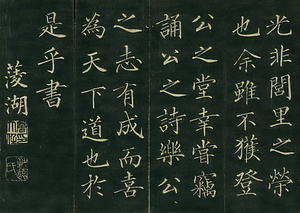 光非閭里之榮
也余雖不獲登
公之堂幸嘗竊
誦公之詩樂公
之志有成而喜
為天下道也於
是乎書
蔆湖